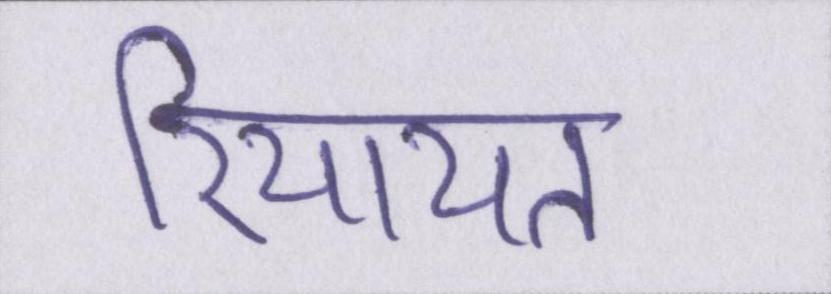 रियायत